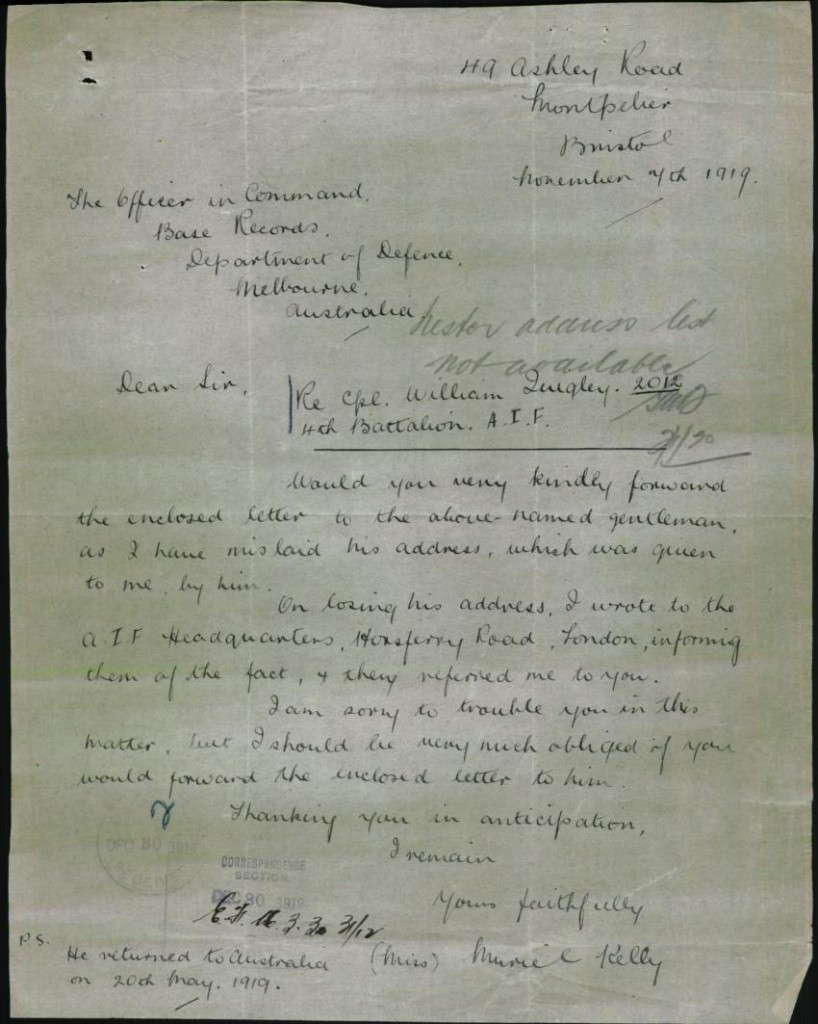 49 Ashley Road
Montpelier
Bristol
November 7th 1919.
The Officer in Command,
Base Records,
Department of Defence,
Melbourne,
Australia,
address list
not available
Dear Sir,
Re Cpl. William Quigley. 2012
4th Battalion. A.I.F.
Would you very kindly forward
the enclosed letter to the above-named gentleman,
as I have mislaid his address, which was given
to me, by him.
On losing his address, I wrote to the
A.I.F Headquarters, Horsferry Road, London, informing
them of the fact, & they referred me to you.
I am sorry to trouble you in this
matter, but I should be very much obliged if you
would forward the enclosed letter to him.
Thanking you in anticipation,
I remain
DEC 30 191
CORRESPONDENCE
SECTION
DEC 30 1919
Yours faithfully
31/12
P.S.
He returned to Australia
on 20th May. 1919.
(Miss) Muriel Kelly